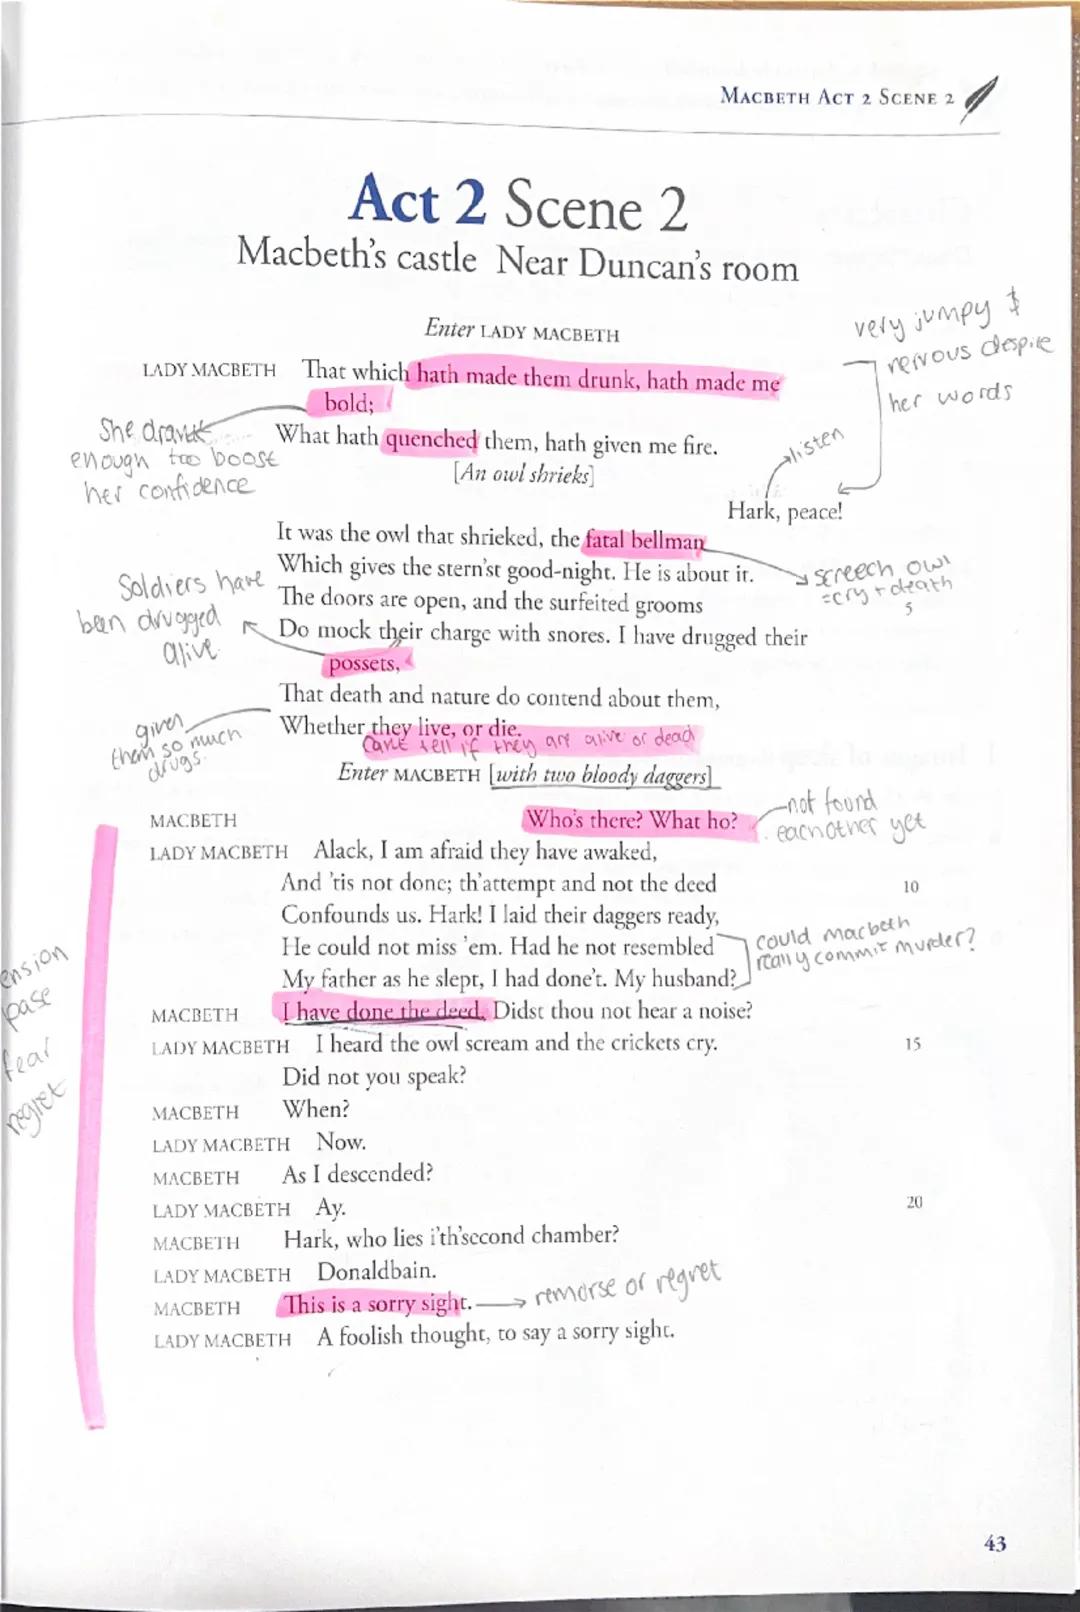 MACBETH ACT 2 SCENE 2
Act 2 Scene 2
Macbeth's castle Near Duncan's room
Enter LADY MACBETH
very jumpy &
nervous despite
her words
LADY MACBETH That which hath made them drunk, hath made me
bold;
She drank
enough too boost
her confidence
What hath quenched them, hath given me fire.
listen
[An owl shrieks]
Hark, peace!
It was the owl that shrieked, the fatal bellman
Which gives the stern'st good-night. He is about it.
screech owl
= cry + death
s
The doors are open, and the surfeited grooms
Soldiers have
been drugged
alive.
Do mock their charge with snores. I have drugged their
possets,
That death and nature do contend about them,
given
them so much
drugs.
Whether they live, or die.
cant tell if they are alive or dead
Enter MACBETH [with two bloody daggers]
MACBETH Who's there? What ho?
not found
eachother yet
LADY MACBETH Alack, I am afraid they have awaked,
And 'tis not done; th'attempt and not the deed 10
Confounds us. Hark! I laid their daggers ready,
He could not miss 'em. Had he not resembled
could macbeth
really commit murder?
My father as he slept, I had done't. My husband?
ension
pase
fear
regret
MACBETH I have done the deed. Didst thou not hear a noise?
LADY MACBETH I heard the owl scream and the crickets cry. 15
Did not you speak?
MACBETH When?
LADY MACBETH Now.
MACBETH As I descended?
LADY MACBETH Ay. 20
MACBETH Hark, who lies i'th'second chamber?
LADY MACBETH Donaldbain.
MACBETH This is a sorry sight.
remorse or regret
LADY MACBETH A foolish thought, to say a sorry sight.
43